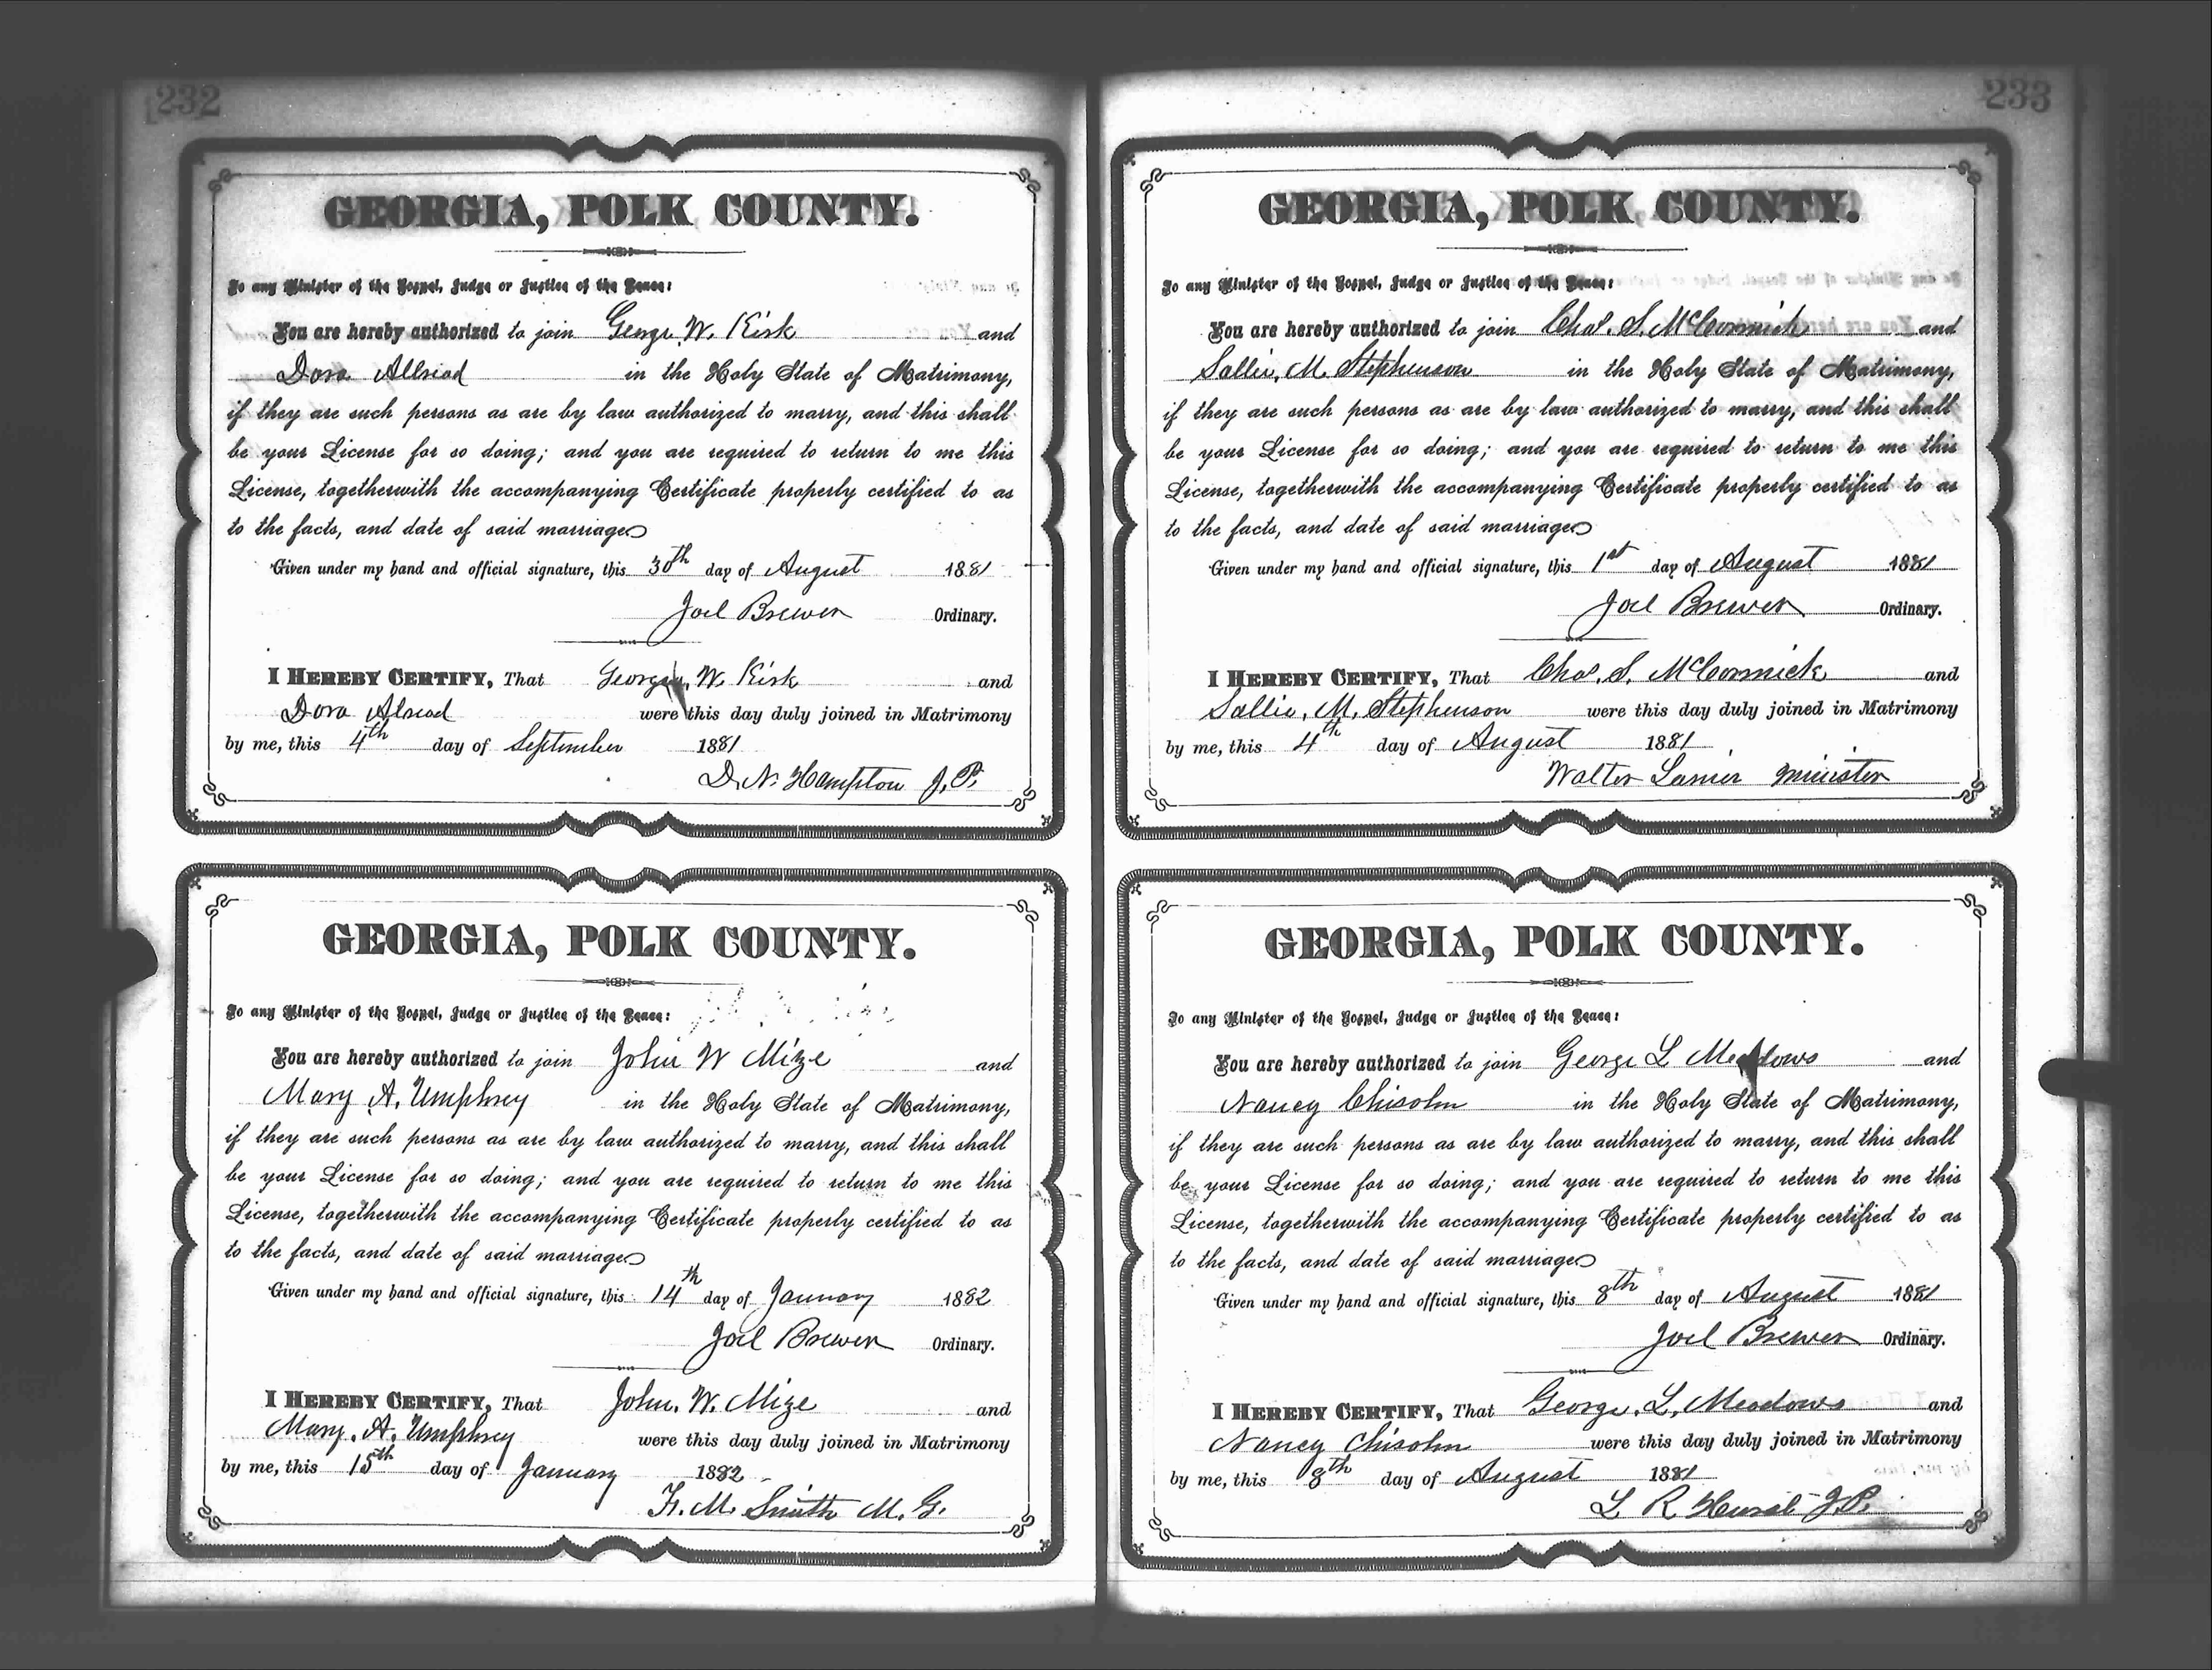 232
GEORGIA, POLK COUNTY.
To any Minister of the Gospel, Judge or Justice of the Peace:
You are hereby authorized to join George W. Kirk and
Dora Allread in the Holy State of Matrimony,
if they are such persons as are by law authorized to marry, and this shall
be your License for so doing; and you are required to return to me this
License, togetherwith the accompanying Certificate properly certified to as
to the facts, and date of said marriage
Given under my hand and official signature, this 30th day of August 1881
Joel Brewer Ordinary.
I HEREBY CERTIFY, That George, W. Kirk and
Dora Alread were this day duly joined in Matrimony
by me, this 4th day of September 1881
D. N. Hampton J. P.
GEORGIA, POLK COUNTY.
To any Minister of the Gospel, Judge or Justice of the Peace:
You are hereby authorized to join John W Mize and
Mary A. Umphrey in the Holy State of Matrimony,
if they are such persons as are by law authorized to marry, and this shall
be your License for so doing; and you are required to return to me this
License, togetherwith the accompanying Certificate properly certified to as
to the facts, and date of said marriage
Given under my hand and official signature, this 14th day of January 1882
Joel Brewer Ordinary.
I HEREBY CERTIFY, That John. W. Mize and
Mary. A. Umphrey were this day duly joined in Matrimony
by me, this 15th day of January 1882
Smith M. G.
233
GEORGIA, POLK COUNTY.
To any Minister of the Gospel, Judge or Justice of the Peace:
You are hereby authorized to join Chas. S. McCormick and
Sallie, M. Stephenson in the Holy State of Matrimony,
if they are such persons as are by law authorized to marry, and this shall
be your License for so doing; and you are required to return to me this
License, togetherwith the accompanying Certificate properly certified to as
to the facts, and date of said marriage
Given under my hand and official signature, this 1st day of August 1881
Joel Brewer Ordinary.
I HEREBY CERTIFY, That Chas. S. McCormick and
Sallie, M. Stephenson were this day duly joined in Matrimony
by me, this 4th day of August 1881
Walter Lanier Minister
GEORGIA, POLK COUNTY.
To any Minister of the Gospel, Judge or Justice of the Peace:
You are hereby authorized to join George L Meadows and
Nancy Chisolm in the Holy State of Matrimony,
if they are such persons as are by law authorized to marry, and this shall
be your License for so doing; and you are required to return to me this
License, togetherwith the accompanying Certificate properly certified to as
to the facts, and date of said marriage
Given under my hand and official signature, this 8th day of August 1881
Joel Brewer Ordinary.
I HEREBY CERTIFY, That George. L. Meadows and
Nancy Chisolm were this day duly joined in Matrimony
by me, this 8th day of August 1881
L R J. P.